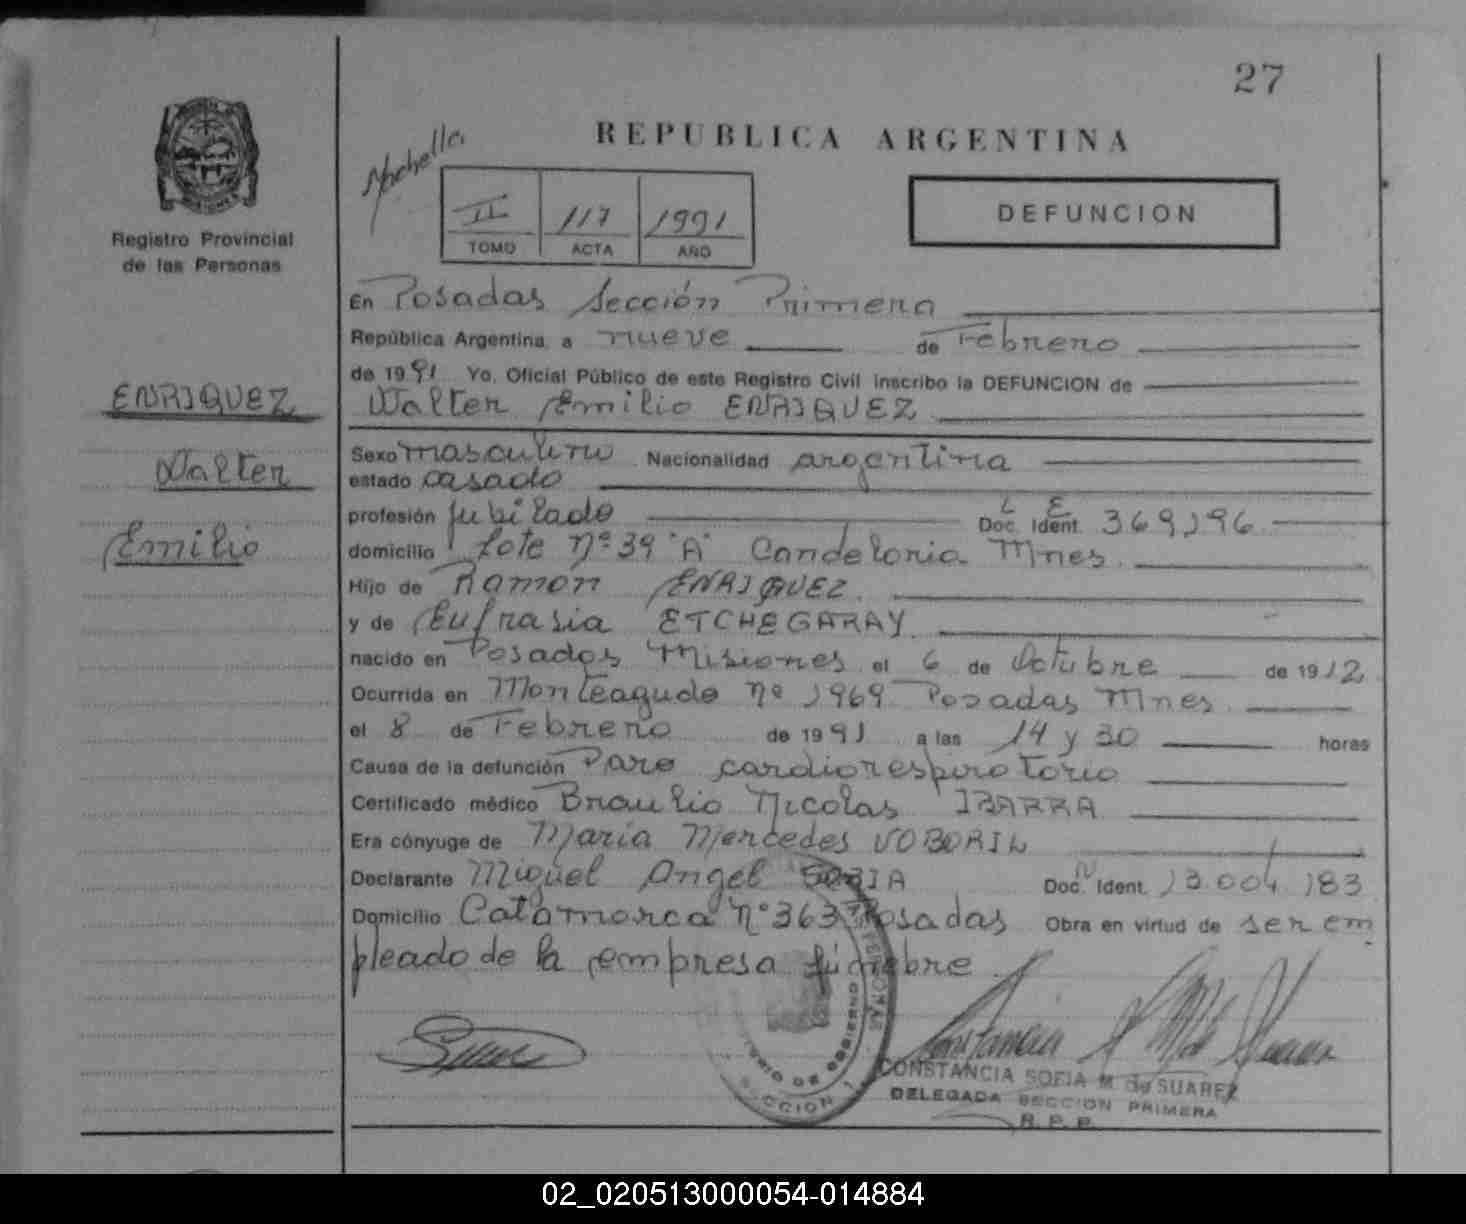 27
REPUBLICA ARGENTINA
Registro Provincial
de las Personas
II 117 1991
TOMO ACTA AÑO
DEFUNCION
En Posadas Sección Primera
República Argentina, a nueve de Febrero
de 1991 Yo, Oficial Público de este Registro Civil inscribo la DEFUNCION de
Walter Emilio ENRIQUEZ
ENRIQUEZ
Walter
Emilio
Sexo masculino Nacionalidad argentina
estado casado
profesión jubilado Doc. Ident. L E 369196
domicilio Lote Nº 39 "A" Candelaria Mnes.
Hijo de Ramon ENRIQUEZ
y de Eufrasia ETCHEGARAY
nacido en Posadas Misiones el 6 de Octubre de 1912
Ocurrida en Monteagudo nº 1969 Posadas Mnes.
el 8 de Febrero de 1991 a las 14 y 30 horas
Causa de la defunción Paro cardiorespiratorio
Certificado médico Braulio Nicolas IBARRA
Era cónyuge de Maria Mercedes VOBORIL
Declarante Miguel Angel Doc. Ident. 13.004.183
Domicilio Catamarca Nº 363 Posadas Obra en virtud de ser em
pleado de la empresa fúnebre
CONSTANCIA SOFIA M. de SUAREZ
DELEGADA SECCION PRIMERA
R. P. P.
SECCION 1
02_020513000054-014884